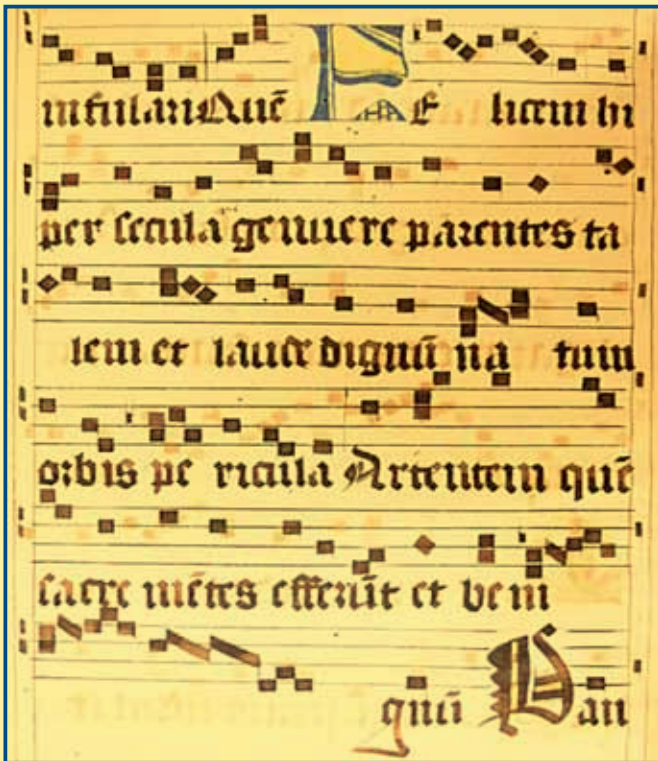 infulari Quē Felicem hi
per secula genuere parentes ta
lem et laude dignū na tum
orbis pe ricula Artentem quē
sacre mētes efferūt et beni
gnū Pan